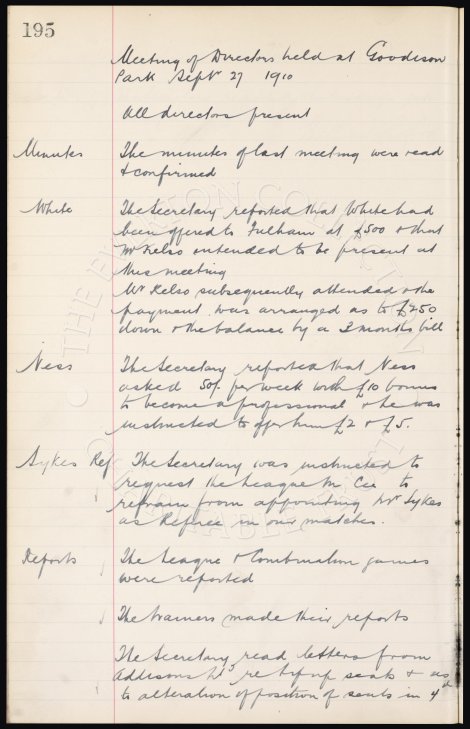 195
Meeting of Directors held at Goodison
Park Sept 27 1910
All directors present
Minutes The minutes of last meeting were read
& confirmed
White The Secretary reported that White had
been offered to Fulham at £500 & that
Mr Kelso intended to be present at
this meeting
Mr Kelso subsequently attended & the
payment was arranged as to £250
down & the balance by a 3 months bill
Ness The Secretary reported that Ness
asked 50/- per week with £10 bonus
to become a professional & he was
instructed to offer him £2 & £5.
Sykes Ref The Secretary was instructed to
request the League M. Cee to
refrain from appointing Mr Sykes
as Referee in our matches.
Reports The League & Combination games
were reported
The trainers made their reports
The Secretary read letters from
Addisons Ld re tip up seats & as
to alteration of position of seats in 4